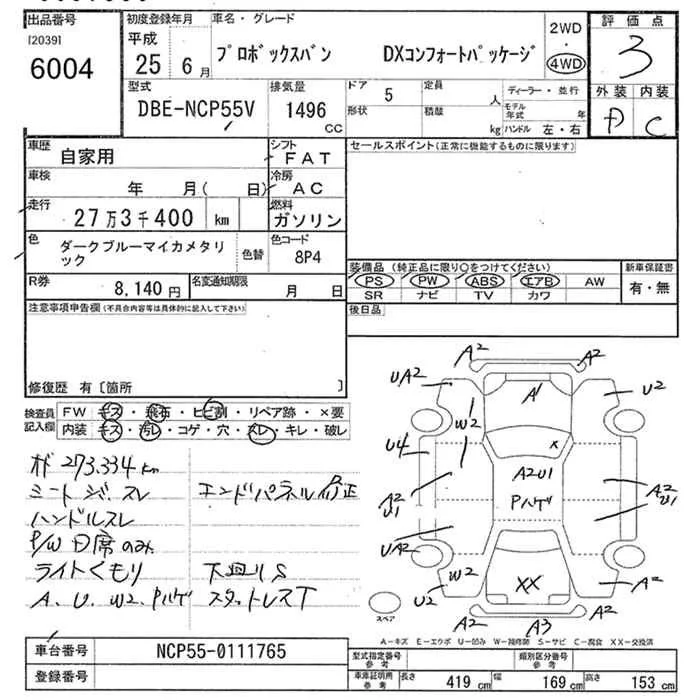 出品番号
[20391
6004
初度登録年月
平成
25 6月
車名・グレード
プロボックスバン DXコンフォートパッケージ
2WD
4WD
評価点
3
外装 内装
D C
型式
DBE-NCP55V
排気量
1496
CC
ドア 5
形状
定員 人
積載 kg
ディーラー・並行
モデル年式 年
ハンドル 左・右
車歴 自家用
シフト FAT
車検 年 月( 日)
冷房 AC
走行 27万3千400 km
燃料 ガソリン
色 ダークブルーマイカメタリック
色替
色コード 8P4
R券 8,140円
名変通知期限 月 日
注意事項申告欄(不具合内容等は具体的に記入して下さい)
修復歴 有〔箇所 〕
セールスポイント(正常に機能するものに限ります)
装備品(純正品に限り○をつけてください)
PS PW ABS エアB AW
SR ナビ TV カワ
新車保証書
有・無
後日品
検査員記入欄
FW キズ・飛石・ヒビ割・リペア跡・×要
内装 キズ・汚レ・コゲ・穴・スレ・キレ・破レ
273.334 km
シートジ.スレ
エンドパネル修正
ハンドルスレ
P/W D席のみ
ライトくもり
下廻りS
A、U、W2、Pハゲ
スタットレスT
A2 A2
UA2 A1 U2
W2
U4 X
A2U1
Pハゲ
A2
U1
A2
U1
UA2
W2 XX A2
U2
A2 A3 A2
スペア
A-キズ E-エクボ U-凹み W-補修跡 S-サビ C-腐食 XX-交換済
車台番号 NCP55-0111765
登録番号
型式指定番号 参考
類別区分番号 参考
車庫証明用 参考
長さ 419 cm
幅 169 cm
高さ 153 cm